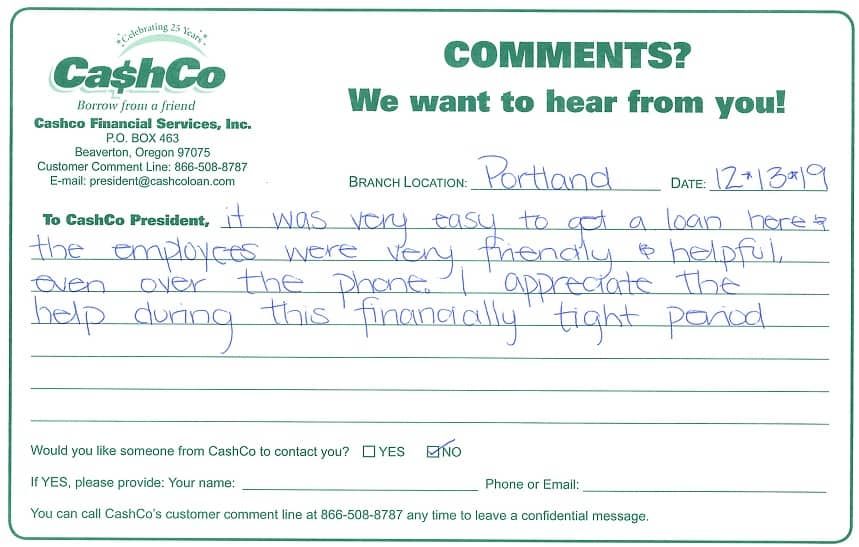 Celebrating 25 Years
Ca$hCo
Borrow from a friend
Cashco Financial Services, Inc.
P.O. BOX 463
Beaverton, Oregon 97075
Customer Comment Line: 866-508-8787
E-mail: president@cashcoloan.com
COMMENTS?
We want to hear from you!
BRANCH LOCATION: Portland DATE: 12*13*19
To CashCo President, it was very easy to get a loan here &
the employees were very friendly & helpful,
even over the phone. I appreciate the
help during this financially tight period
Would you like someone from CashCo to contact you? ☐ YES ☑ NO
If YES, please provide: Your name: Phone or Email:
You can call CashCo's customer comment line at 866-508-8787 any time to leave a confidential message.